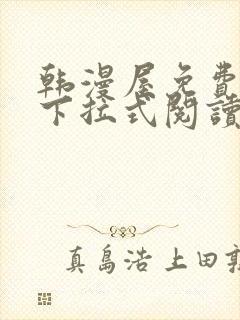 韩漫屋免费
下拉式閱讀
真島浩 上田敦